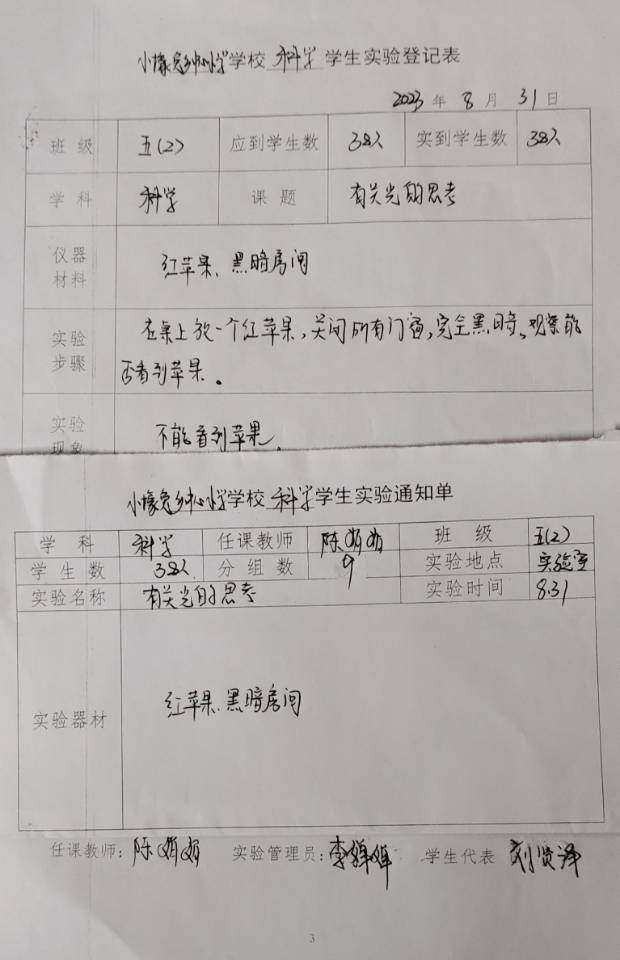 学校 科学 学生实验登记表
2023 年 8 月 31 日
班 级 五(2) 应到学生数 38人 实到学生数 38人
学 科 科学 课 题 有关光的思考
仪器材料 红苹果、黑暗房间
实验步骤 在桌上放一个红苹果,关闭所有门窗,完全黑暗。观察能
否看到苹果。
实验现象 不能看到苹果。
学校 科学 学生实验通知单
学 科 科学 任课教师 陈娟娟 班 级 五(2)
学 生 数 38人 分 组 数 9 实验地点 实验室
实验名称 有关光的思考 实验时间 8.31
实验器材 红苹果、黑暗房间
任课教师:陈娟娟 实验管理员:李 学生代表 刘贤泽
3